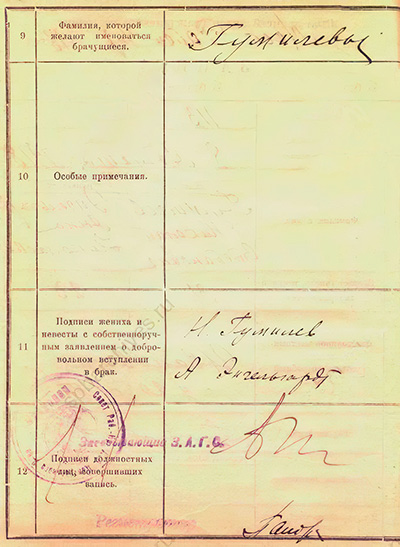 9
Фамилия, которой
желают именоваться
брачущиеся.
Гумилевы
10
Особые примечания.
11
Подписи жениха и
невесты с собственноруч-
ным заявлением о добро-
вольном вступлении
в брак.
Н Гумилев
А Энгельгардт
Заведывающий З.А.Г.С.
12
Подписи должностных
лиц, совершивших
запись.